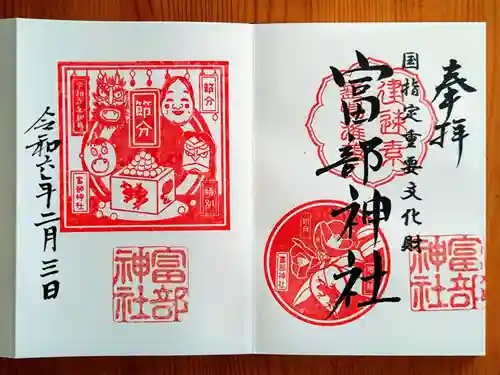 奉拝
国指定重要文化財
富部神社
建速素
富部
神社
富部神社
令和六年二月三日
節分
節分
特別
富部神社
富部
神社